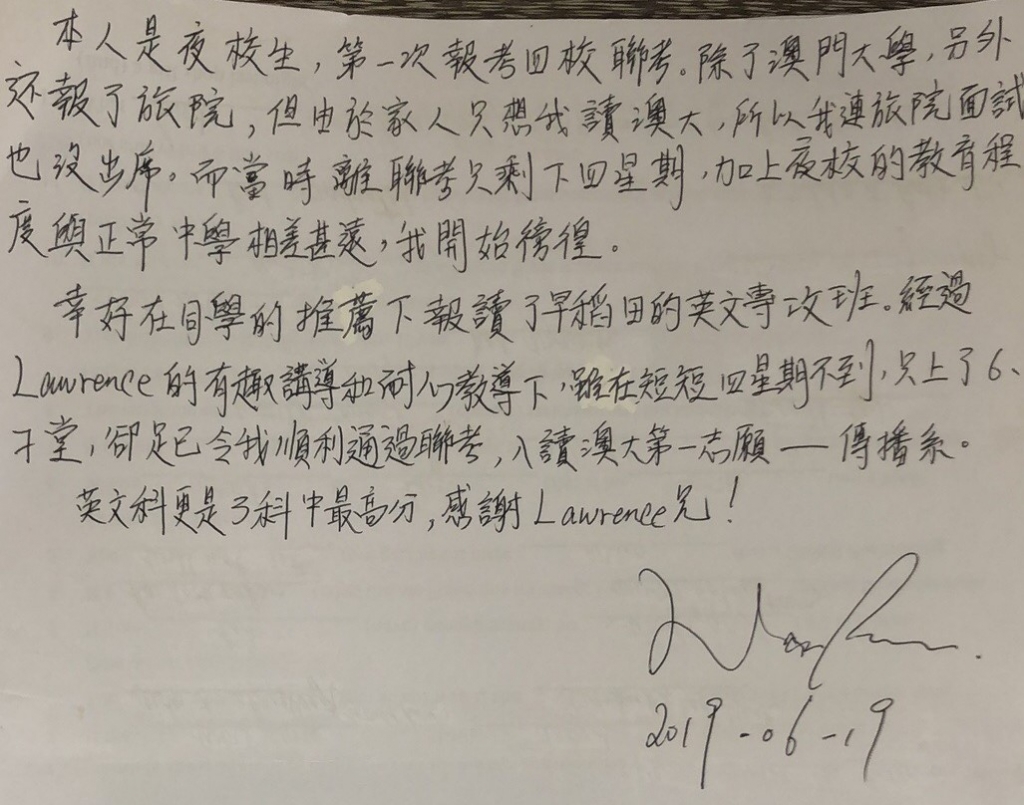 本人是夜校生，第一次報考四校聯考。除了澳門大學，另外
还報了旅院，但由於家人只想我讀澳大，所以我連旅院面試
也沒出席。而當時離聯考只剩下四星期，加上夜校的教育程
度與正常中學相差甚遠，我開始徬徨。
幸好在同學的推薦下報讀了早稻田的英文專攻班。經過
Lawrence的有趣講導和耐心教導下，雖在短短四星期不到，只上了6、
7堂，卻足已令我順利通過聯考，入讀澳大第一志願——傳播系。
英文科更是3科中最高分，感謝Lawrence兄！
2019-06-19